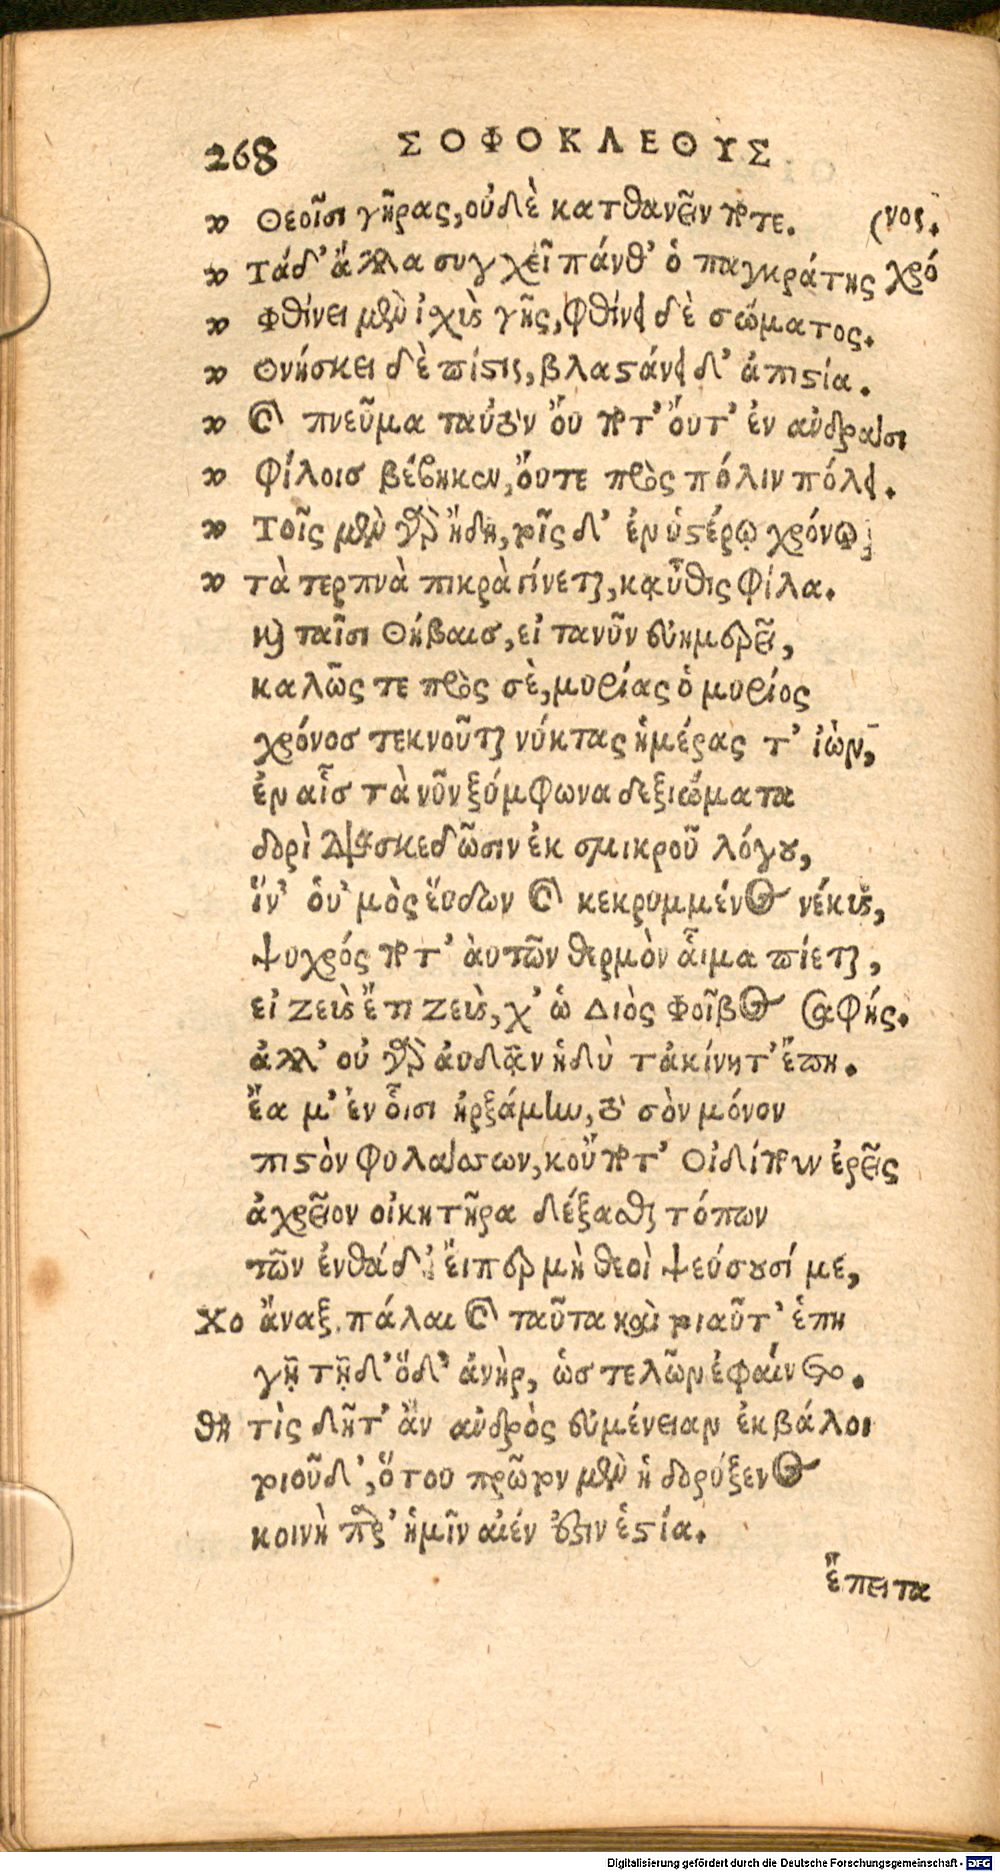 268 ΣΟΦΟΚΛΕΟΥΣ
Θεοῖσι γῆρας, οὐδὲ κατθανεῖν ποτε. (νος.
Τάδ' ἄλλα συγχεῖ πάνθ' ὁ παγκράτης χρό
Φθίνει μὲν ἰσχὺς γῆς, φθίνει δὲ σώματος.
Θνήσκει δὲ πίστις, βλαστάνει δ' ἀπιστία.
καὶ πνεῦμα ταυτὸν ὄυ ποτ' ὄυτ' ἐν ἀνδράσι
Φίλοισ βέβηκεν, ὄυτε πρὸς πόλιν πόλει.
Τοῖς μὲν γὰρ ἤδη, τοῖς δ' ἐν ὑστέρῳ χρόνῳ
τὰ τερπνὰ πικρὰ γίνεται, καὖθις φίλα.
καὶ ταῖσι Θήβαισ, εἰ τανῦν εὐημερεῖ,
καλῶς τε πρὸς σὲ, μυρίας ὁ μυρίος
χρόνοσ τεκνοῦται νύκτας ἡμέρας τ' ἰὼν,
ἐν αἷσ τὰ νῦν ξύμφωνα δεξιώματα
δορὶ διασκεδῶσιν ἐκ σμικροῦ λόγου,
ἵν' ὁυ' μὸς ἕυδων καὶ κεκρυμμένος νέκυς,
ψυχρός ποτ' ἀυτῶν θερμὸν αἷμα πίεται,
εἰ Ζεὺς ἔτι Ζεὺς, χ' ὡ Διὸς Φοῖβος σαφής.
ἀλλ' οὐ γὰρ ἀυδᾶν ἡδὺ τἀκίνητ' ἔπη.
ἔα μ' ἐν οἷσι ἠρξάμην, τὸ σὸν μόνον
πιστὸν φυλάσσων, κοὔποτ' Οἰδίπουν ἐρεῖς
ἀχρεῖον οἰκητῆρα δέξασθαι τόπων
τῶν ἐνθάδ', ἔιπερ μὴ θεοὶ ψεύσουσί με,
Χο ἄναξ, πάλαι καὶ ταῦτα καὶ τοιαῦτ' ἐπη
γῇ τῇδ' ὅδ' ἀνὴρ, ὡσ τελῶν ἐφαίνετο.
θη τίς δῆτ' ἂν ἀνδρὸς εὐμένειαν ἐκβάλοι
τοιοῦδ', ὅτου πρῶτον μὲν ἡ δορύξενος
κοινὴ παρ' ἡμῖν αἰέν ἐστιν ἑστία.
ἔπειτα
Digitalisierung gefördert durch die Deutsche Forschungsgemeinschaft - DFG